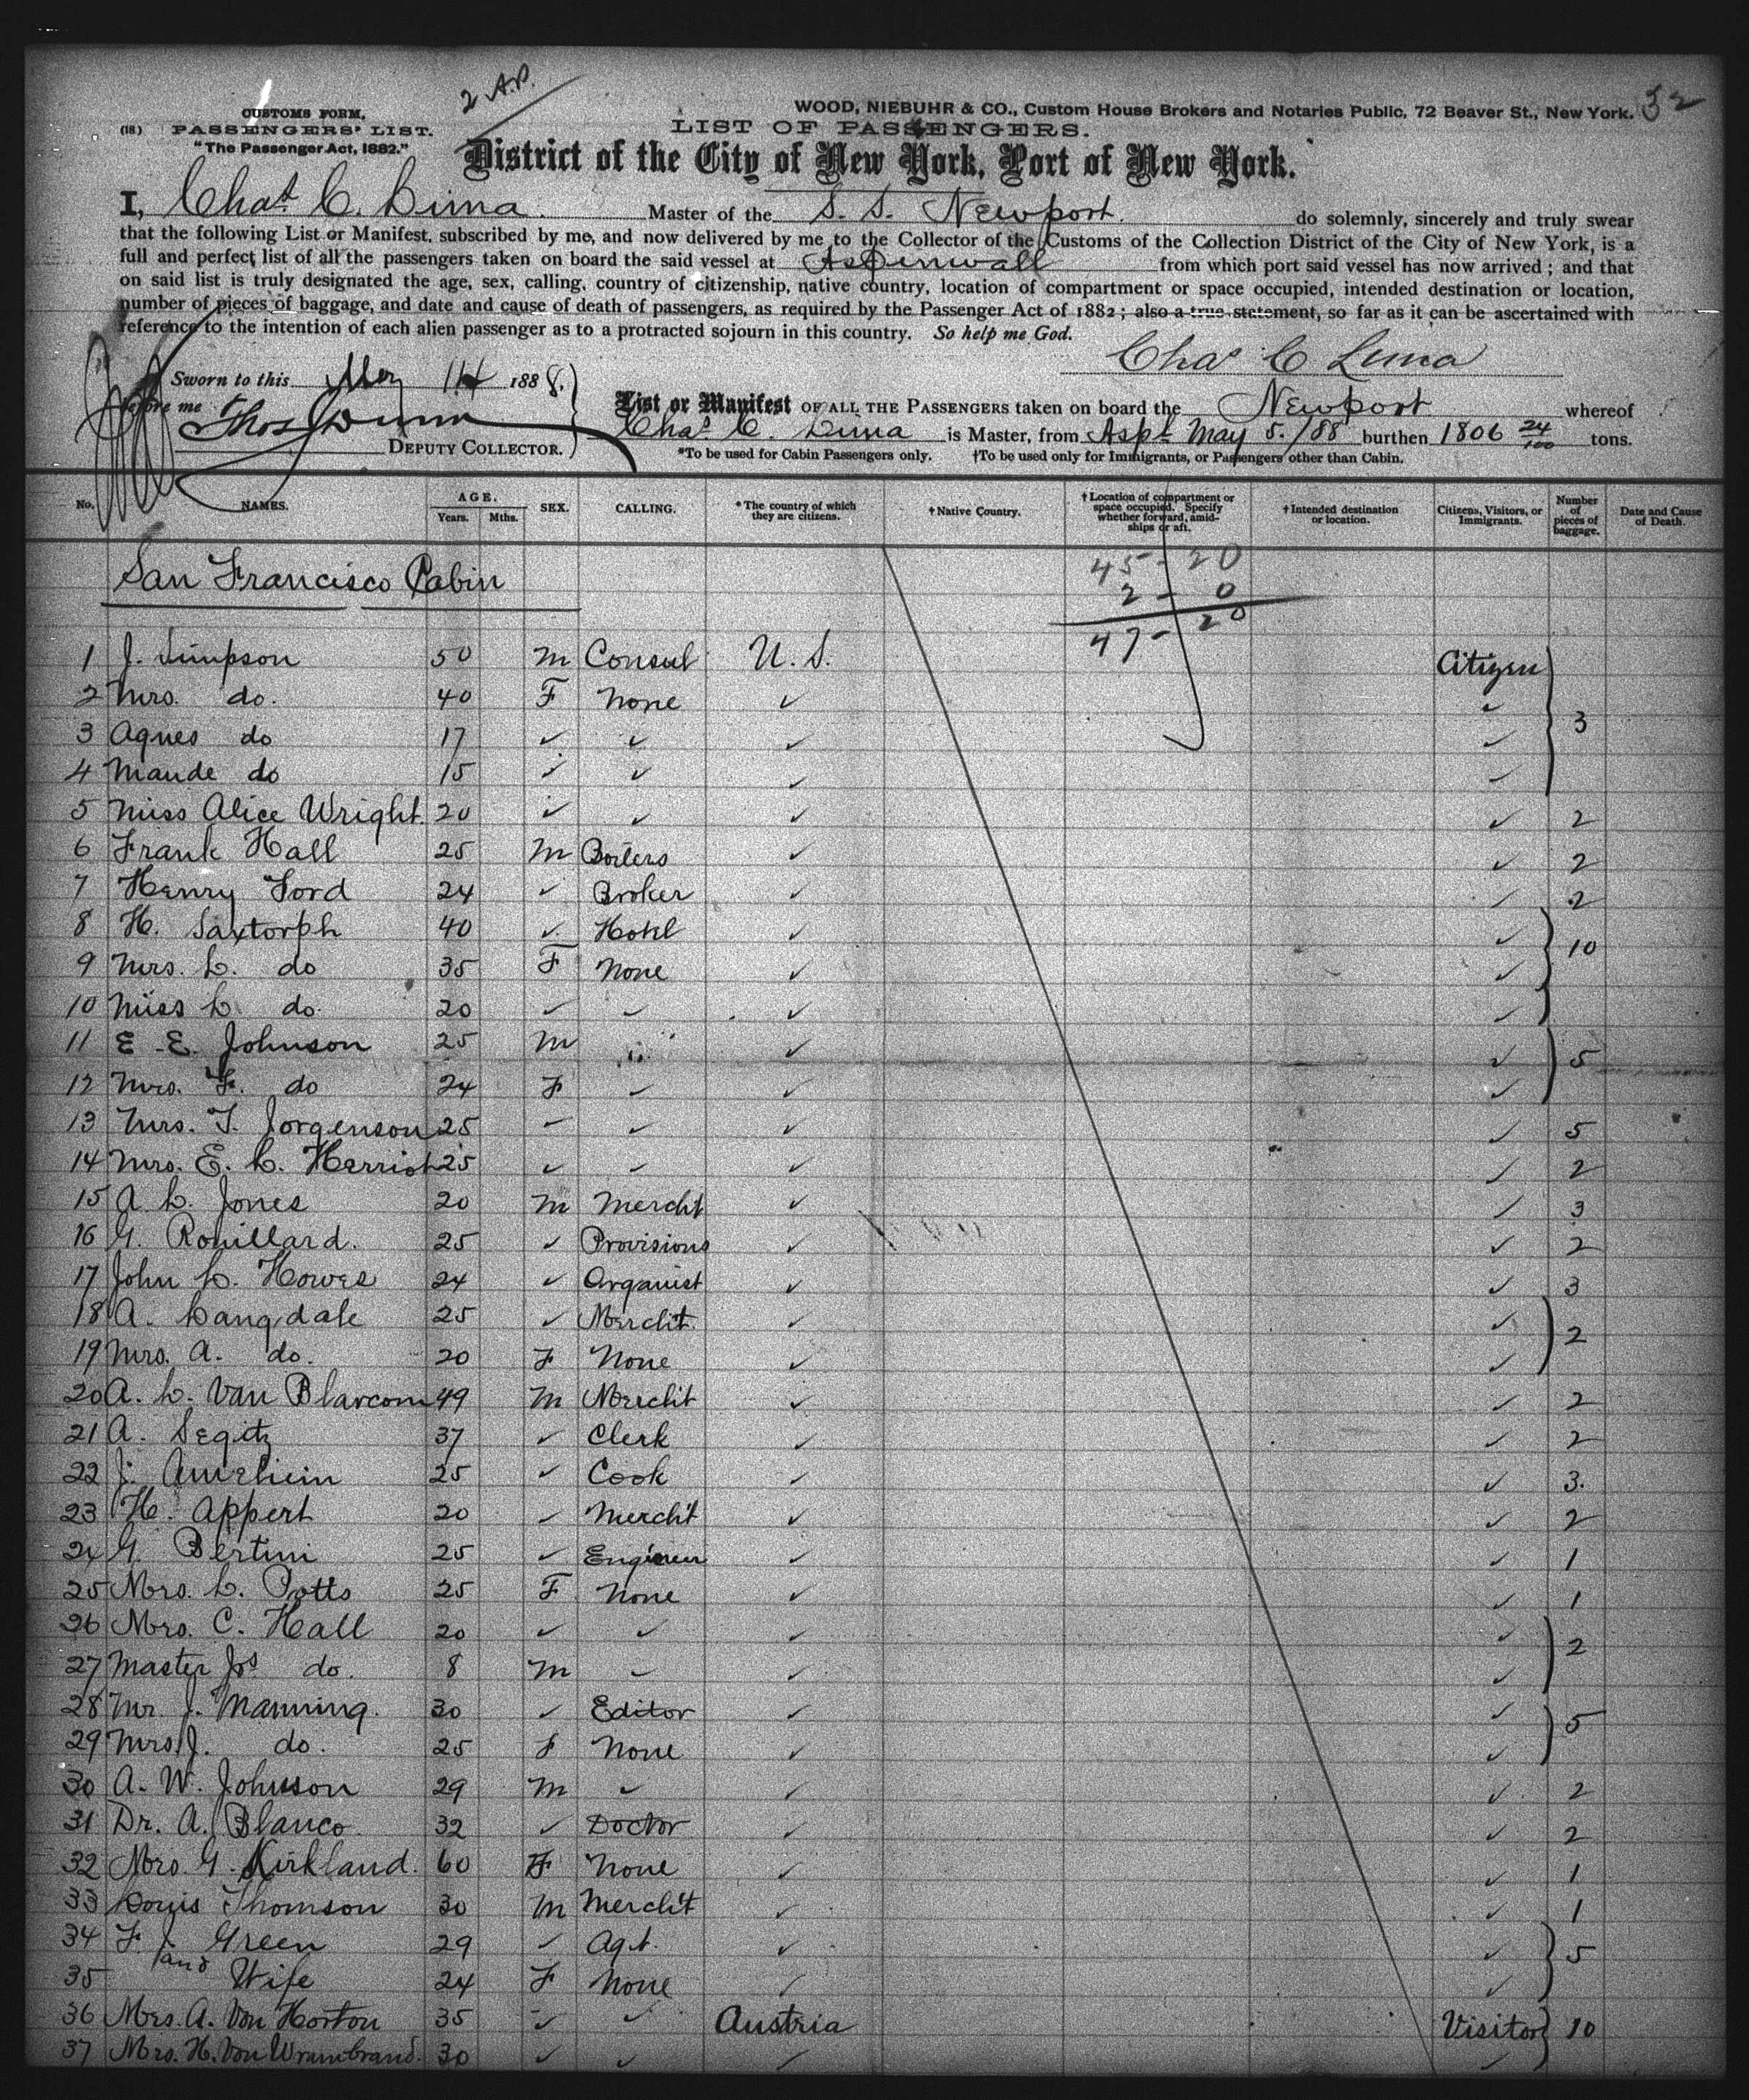 2 A.P.
32
CUSTOMS FORM,
(18) PASSENGERS' LIST.
"The Passenger Act, 1882."
WOOD, NIEBUHR & CO., Custom House Brokers and Notaries Public, 72 Beaver St., New York.
LIST OF PASSENGERS.
District of the City of New York, Port of New York.
I, Chas C. Lima Master of the S. S. Newport do solemnly, sincerely and truly swear
that the following List or Manifest, subscribed by me, and now delivered by me to the Collector of the Customs of the Collection District of the City of New York, is a
full and perfect list of all the passengers taken on board the said vessel at Aspinwall from which port said vessel has now arrived; and that
on said list is truly designated the age, sex, calling, country of citizenship, native country, location of compartment or space occupied, intended destination or location,
number of pieces of baggage, and date and cause of death of passengers, as required by the Passenger Act of 1882; also a true statement, so far as it can be ascertained with
reference to the intention of each alien passenger as to a protracted sojourn in this country. So help me God.
Chas C Lima
Sworn to this May 14 1888.
before me
Thos Dunn
DEPUTY COLLECTOR.
List or Manifest OF ALL THE PASSENGERS taken on board the Newport whereof
Chas C. Lima is Master, from Aspl May 5./88 burthen 1806 24/100 tons.
*To be used for Cabin Passengers only. †To be used only for Immigrants, or Passengers other than Cabin.
No. NAMES. AGE. Years. Mths. SEX. CALLING. *The country of which they are citizens. †Native Country. †Location of compartment or space occupied. Specify whether forward, amidships or aft. †Intended destination or location. Citizens, Visitors, or Immigrants. Number of pieces of baggage. Date and Cause of Death.
San Francisco Cabin
45 - 20
2 - 0
47 - 20
1 J. Simpson 50 M Consul U. S. Citizen
2 Mrs. do. 40 F None ✓ ✓ 3
3 Agnes do 17 ✓ ✓ ✓ ✓
4 Maude do 15 ✓ ✓ ✓ ✓
5 Miss Alice Wright. 20 ✓ ✓ ✓ ✓ 2
6 Frank Hall 25 M Boilers ✓ ✓ 2
7 Henry Ford 24 ✓ Broker ✓ ✓ 2
8 H. Saxtorph 40 ✓ Hotel ✓ ✓ 10
9 Mrs. L. do 35 F None ✓ ✓
10 Miss L. do. 20 ✓ ✓ ✓ ✓
11 E. E. Johnson 25 M ✓ ✓ 5
12 Mrs. F. do 24 F ✓ ✓ ✓
13 Mrs. T. Jorgenson 25 ✓ ✓ ✓ ✓ 5
14 Mrs. E. L. Herriot 25 ✓ ✓ ✓ ✓ 2
15 A L. Jones 20 M Mercht ✓ ✓ 3
16 G. Rouillard. 25 ✓ Provisions ✓ ✓ 2
17 John L. Howes 24 ✓ Organist ✓ ✓ 3
18 A. Langdale 25 ✓ Mercht. ✓ ✓ 2
19 Mrs. A. do. 20 F None ✓ ✓
20 A. L. Van Blarcom 49 M Mercht ✓ ✓ 2
21 A. Segitz 37 ✓ Clerk ✓ ✓ 2
22 J. 25 ✓ Cook ✓ ✓ 3.
23 H. Appert 20 ✓ Mercht ✓ ✓ 2
24 G. Bertini 25 ✓ Engineer ✓ ✓ 1
25 Mrs. L. Potts 25 F None ✓ ✓ 1
26 Mrs. C. Hall 20 ✓ ✓ ✓ ✓ 2
27 Master Jos do. 8 M ✓ ✓ ✓
28 Mr. J. Manning. 30 ✓ Editor ✓ ✓ 5
29 Mrs J. do. 25 F None ✓ ✓
30 A. W. Johnson 29 M ✓ ✓ ✓ 2
31 Dr. A. Blanco. 32 ✓ Doctor ✓ ✓ 2
32 Mrs G. Kirkland. 60 F None ✓ ✓ 1
33 Louis Thomson 30 M Mercht ✓ ✓ 1
34 F. J. Green 29 ✓ Agt. ✓ ✓ 5
35 and Wife 24 F None ✓ ✓
36 Mrs. A. Von Horton 35 ✓ ✓ Austria Visitor 10
37 Mrs. H. Von Wrumbrand. 30 ✓ ✓ ✓ ✓